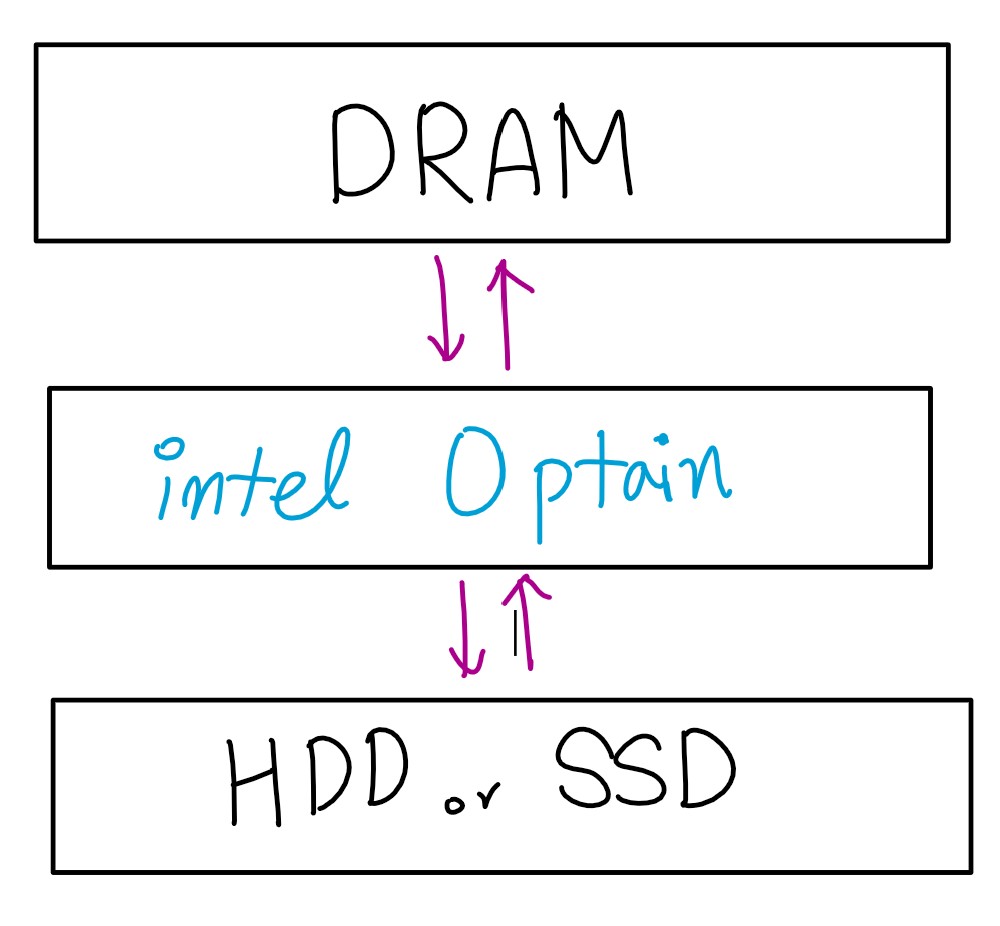 DRAM
intel Optain
HDD or SSD